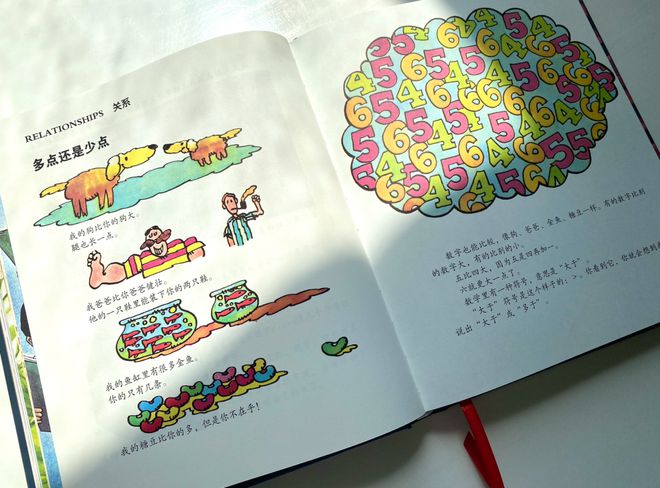 RELATIONSHIPS 关系
多点还是少点
我的狗比你的狗大。
腿也长一点。
我爸爸比你爸爸健壮。
他的一只鞋里能装下你的两只鞋。
我的鱼缸里有很多金鱼。
你的只有几条。
我的糖豆比你的多，但是你不在乎！
数字也能比较，像狗、爸爸、金鱼、糖豆一样。有的数字比别
的数字大，有的比别的小。
五比四大，因为五是四再加一。
六就更大一点了。
数学里有一种符号，意思是“大于”。
“大于”符号是这个样子的：>。你看到它，你就会想到
说出“大于”或“多于”。